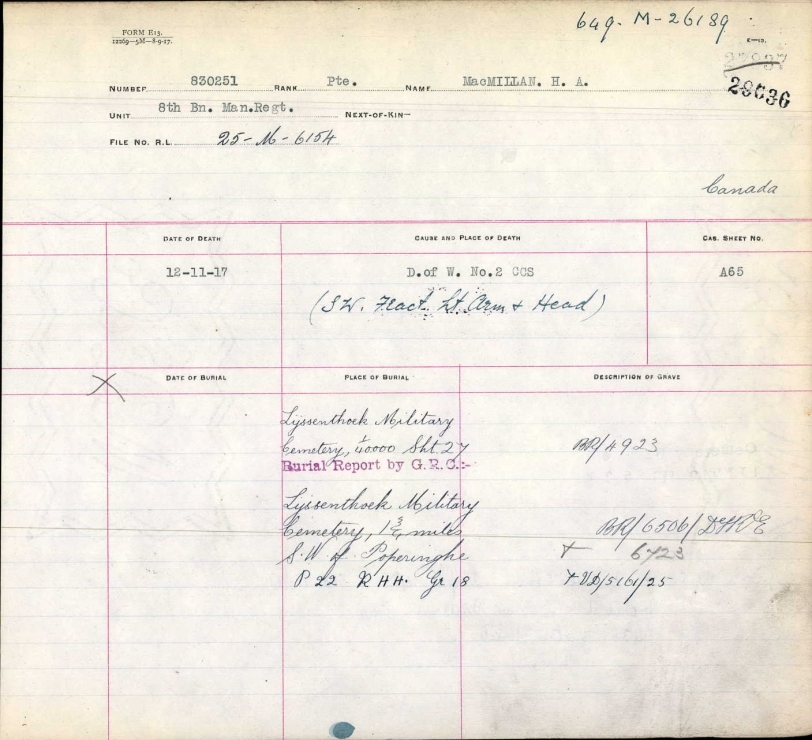 649-M-26189
FORM E13.
12269—5M—8-9-17.
E—13.
27937
29636
NUMBER 830251 RANK Pte. NAME MacMILLAN. H. A.
UNIT 8th Bn. Man.Regt. NEXT-OF-KIN—
FILE NO. R.L. 25-M-6154
Canada
DATE OF DEATH CAUSE AND PLACE OF DEATH CAS. SHEET NO.
12-11-17 D.of W. No.2 CCS A65
(SW. Fract. Lt. Arm & Head)
X DATE OF BURIAL PLACE OF BURIAL DESCRIPTION OF GRAVE
Lijssenthoek Military
Cemetery, 1/40000 Sht. 27 BR/4923
Burial Report by G.R.C.:-
Lijssenthoek Military
Cemetery, 1 3/4 miles BR/6506/
S.W. of Poperinghe + 6723
P 22 R HH. Gr 18 + VD/5161/25